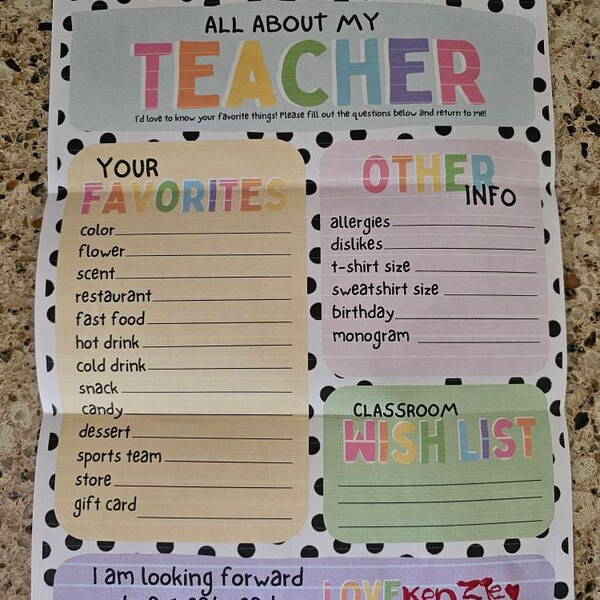 ALL ABOUT MY
TEACHER
I'd love to know your favorite things! Please fill out the questions below and return to me!
YOUR
FAVORITES
color
flower
scent
restaurant
fast food
hot drink
cold drink
snack
candy
dessert
sports team
store
gift card
OTHER
INFO
allergies
dislikes
t-shirt size
sweatshirt size
birthday
monogram
CLASSROOM
WISH LIST
I am looking forward
LOVE Kenzie